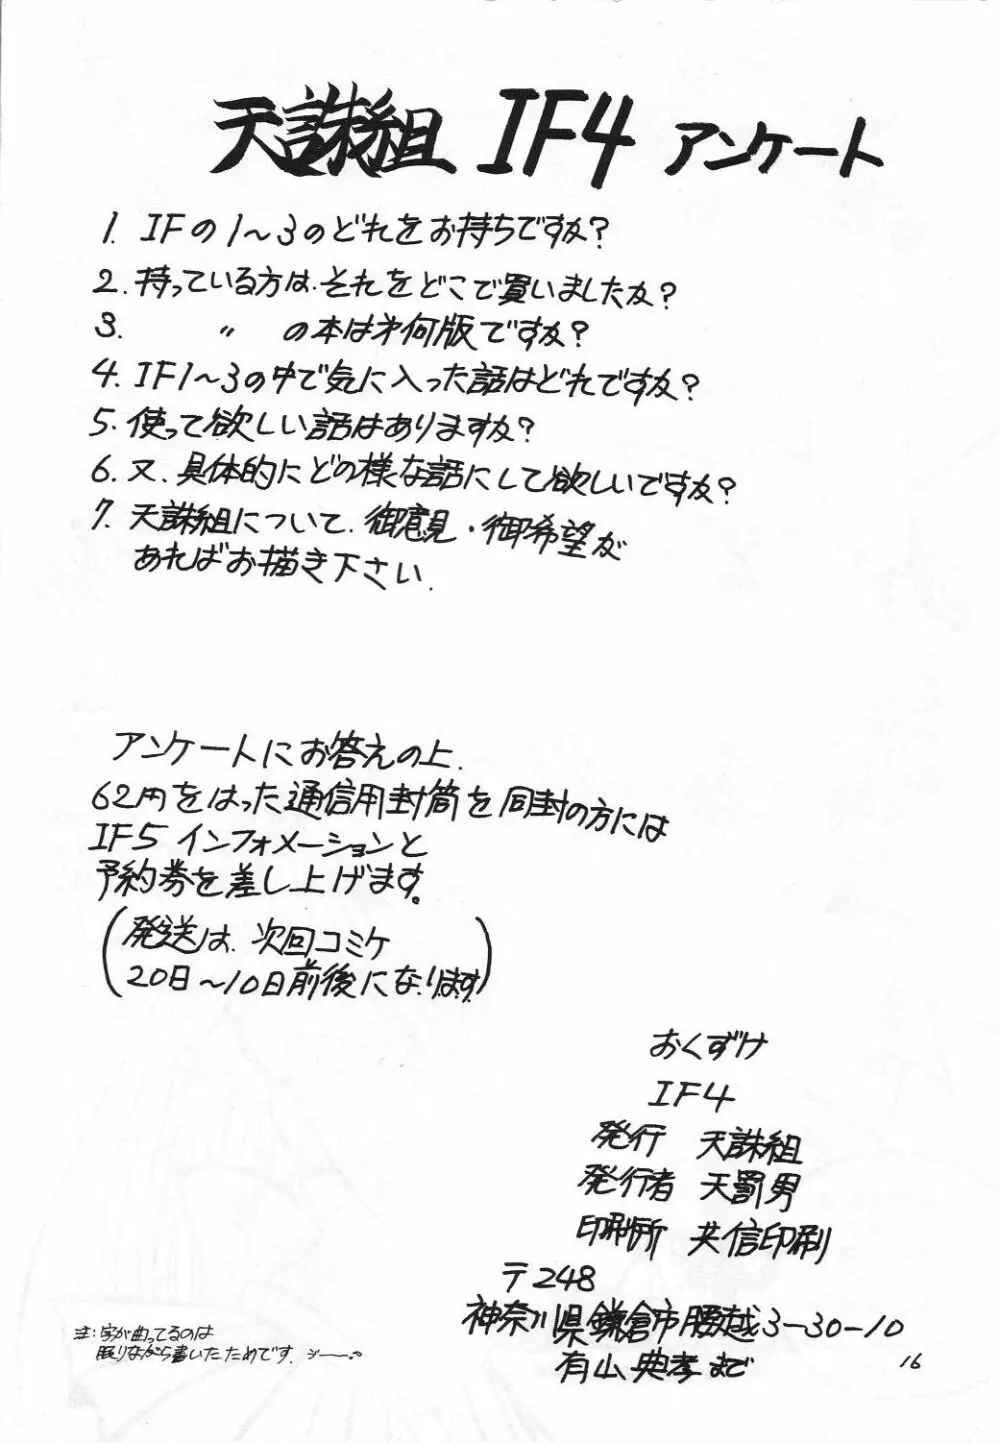 天誅組 IF4 アンケート
1. IFの1～3のどれをお持ちですか?
2. 持っている方は.それをどこで買いましたか?
3. 〃 の本は㐧何版ですか?
4. IF1～3の中で気に入った話はどれですか?
5. 使って欲しい話はありますか?
6. 又、具体的にどの様な話にして欲しいですか?
7. 天誅組について、御意見・御希望が
あればお描き下さい.
アンケートにお答えの上、
62円をはった通信用封筒を同封の方には
IF5 インフォメーションと
予約券を差し上げます。
(発送は、次回コミケ
20日～10日前後になります)
おくずけ
IF4
発行 天誅組
発行者 天罰男
印刷所 共信印刷
〒248
神奈川県鎌倉市腰越3-30-10
有山典孝まで
注:字が曲ってるのは
眠りながら書いたためです.
16